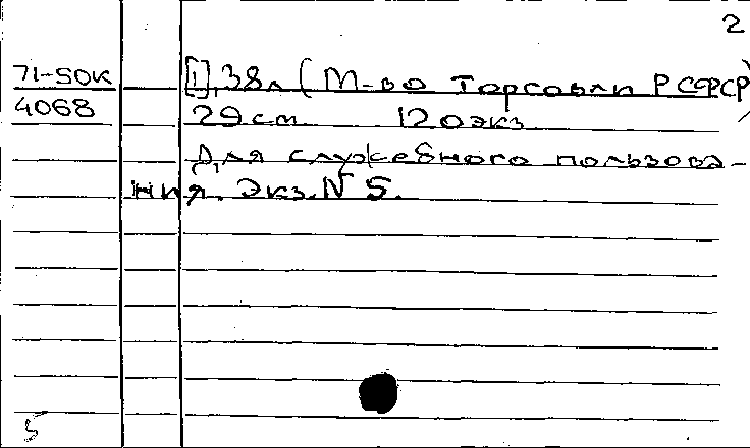 2
71-SOK [1], 38л (М-во Торговли РСФСР)
4068 29 cm 120экз
Для служебного пользова-
ния. Экз. N 5.
5